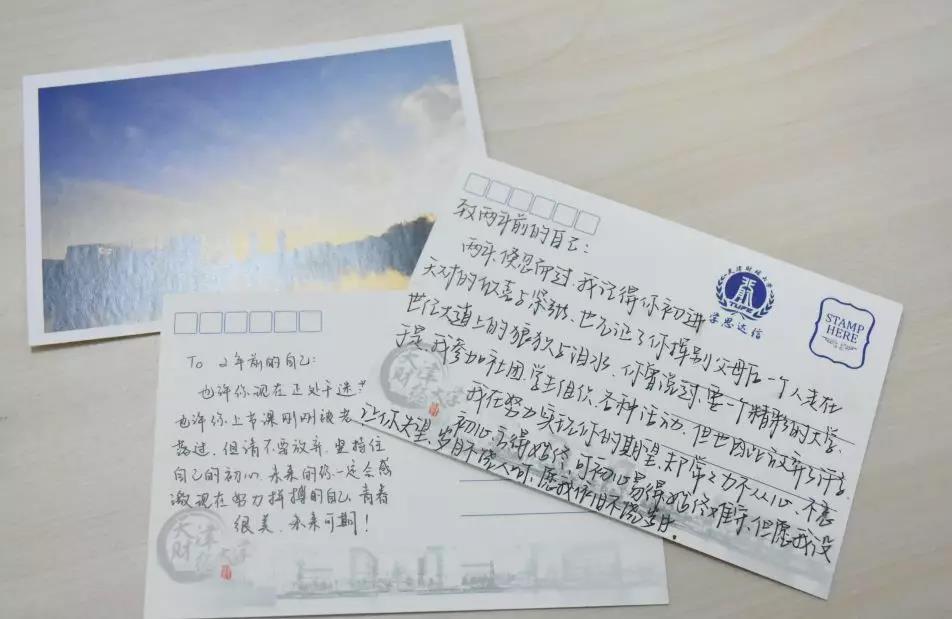 To 2年前的自己:
也许你现在正处于迷
也许你上节课刚刚被老
骂过,但请不要放弃,坚持住
自己的初心,未来的你一定会感
激现在努力拼搏的自己,青春
很美,未来可期!
天津
财经大学
致两年前的自己:
两年,倏忽而过,我记得你初进
天财的欣喜与深沉,也见证了你挥别父母后一个人走在
世纪大道上的狼狈与泪水。你曾说过,要一个精彩的大学,
于是,我参加社团、学生组织、各种活动,但也因此放弃
我在努力实现你的期望,却常常力不从心,不忘
初心,方得始终,可初心易得,始终难守,但愿我没
让你失望,岁月不饶人,愿我们不饶岁月。
天津财经大学
TUFE
STAMP
HERE
天津
财经大学